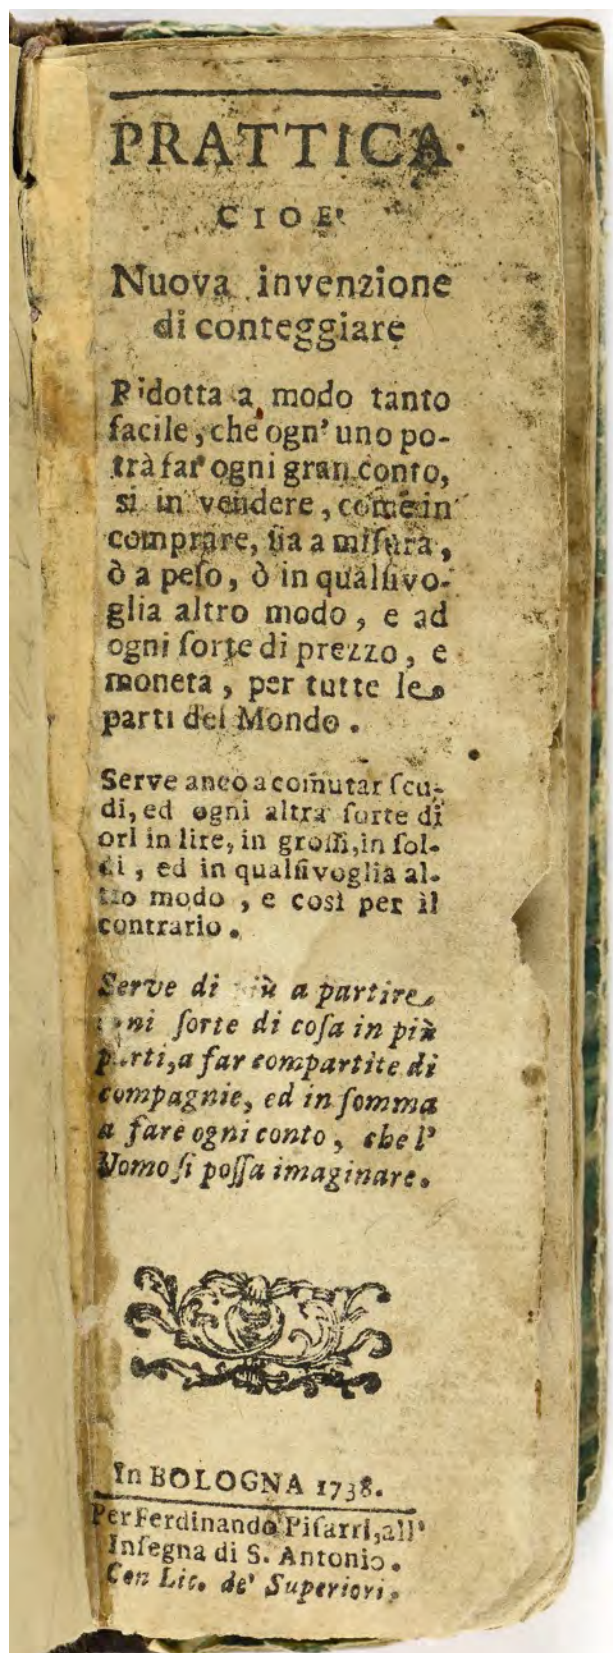 PRATTICA
CIOE'
Nuova invenzione
di conteggiare
Ridotta a modo tanto
facile, che ogn' uno po-
trà far ogni gran conto,
si in vendere, come in
comprare, sia a misura,
ò a peso, ò in qualsivo-
glia altro modo, e ad
ogni sorte di prezzo, e
moneta, per tutte le
parti del Mondo.
Serve anco a com̃utar scu-
di, ed ogni altra sorte di
ori in lire, in grossi, in sol-
di, ed in qualsivoglia al-
tro modo, e così per il
contrario.
Serve di più a partire
ogni sorte di cosa in più
parti, a far compartite di
compagnie, ed in somma
a fare ogni conto, che l'
Uomo si possa imaginare.
In BOLOGNA 1738.
Per Ferdinando Pisarri, all'
Insegna di S. Antonio.
Con Lic. de' Superiori.